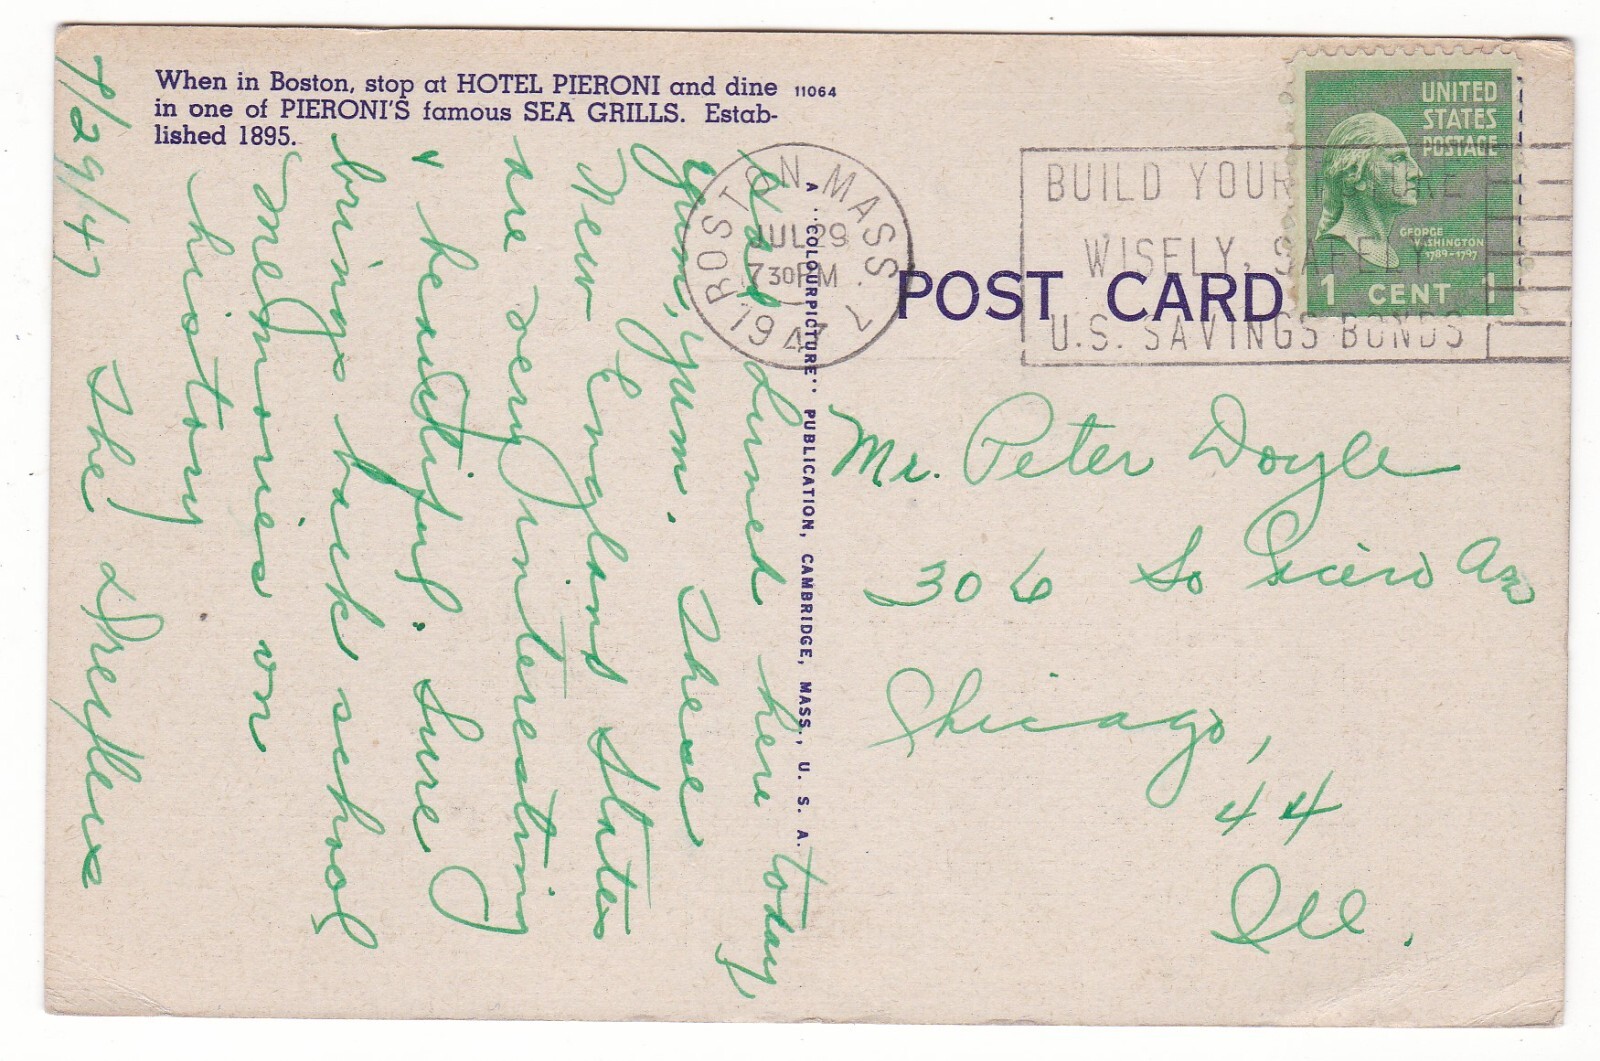 When in Boston, stop at HOTEL PIERONI and dine
in one of PIERONI'S famous SEA GRILLS. Estab-
lished 1895.
11064
7/29/47
Had lunch here today,
yum, yum. These
New England States
are very interesting
& beautiful. Sure
brings back school
memories on
history
The Dreyllers
A "COLOURPICTURE" PUBLICATION, CAMBRIDGE, MASS., U. S. A.
BOSTON MASS
JUL 29
7 30 PM
1947
BUILD YOUR FUTURE
WISELY, SAFELY
U.S. SAVINGS BONDS
UNITED
STATES
POSTAGE
GEORGE
WASHINGTON
1789-1797
1 CENT 1
POST CARD
Mr. Peter Doyle
306 So Cicero Ave
Chicago,
44
Ill.